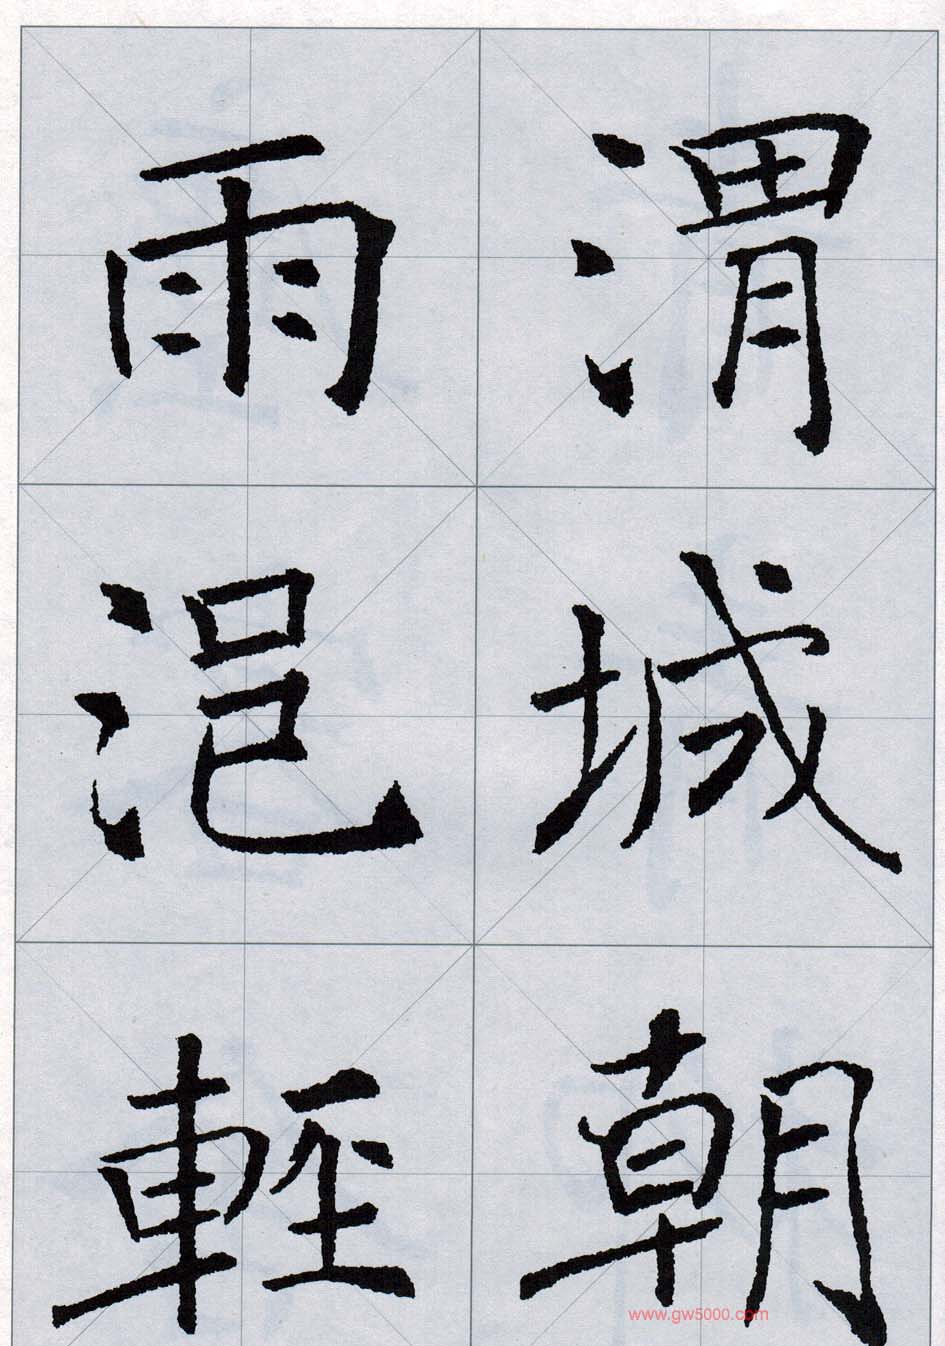 渭城朝
雨浥輕
www.gw5000.com